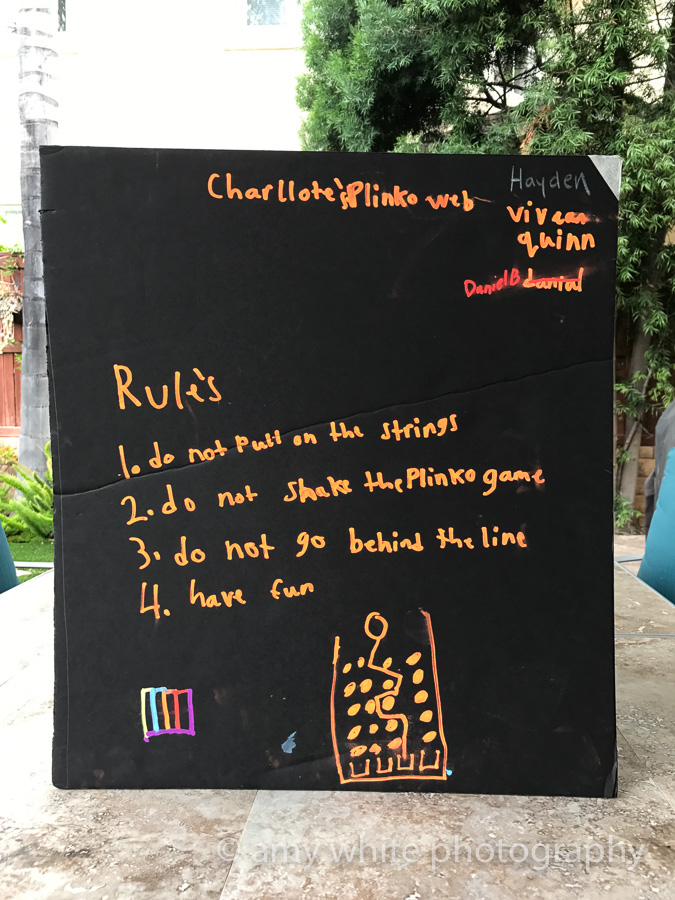 Charllote's Plinko web
Hayden
vivean
quinn
DanielB danial
Rule's
1. do not pull on the strings
2. do not shake the Plinko game
3. do not go behind the line
4. have fun
© amy white photography